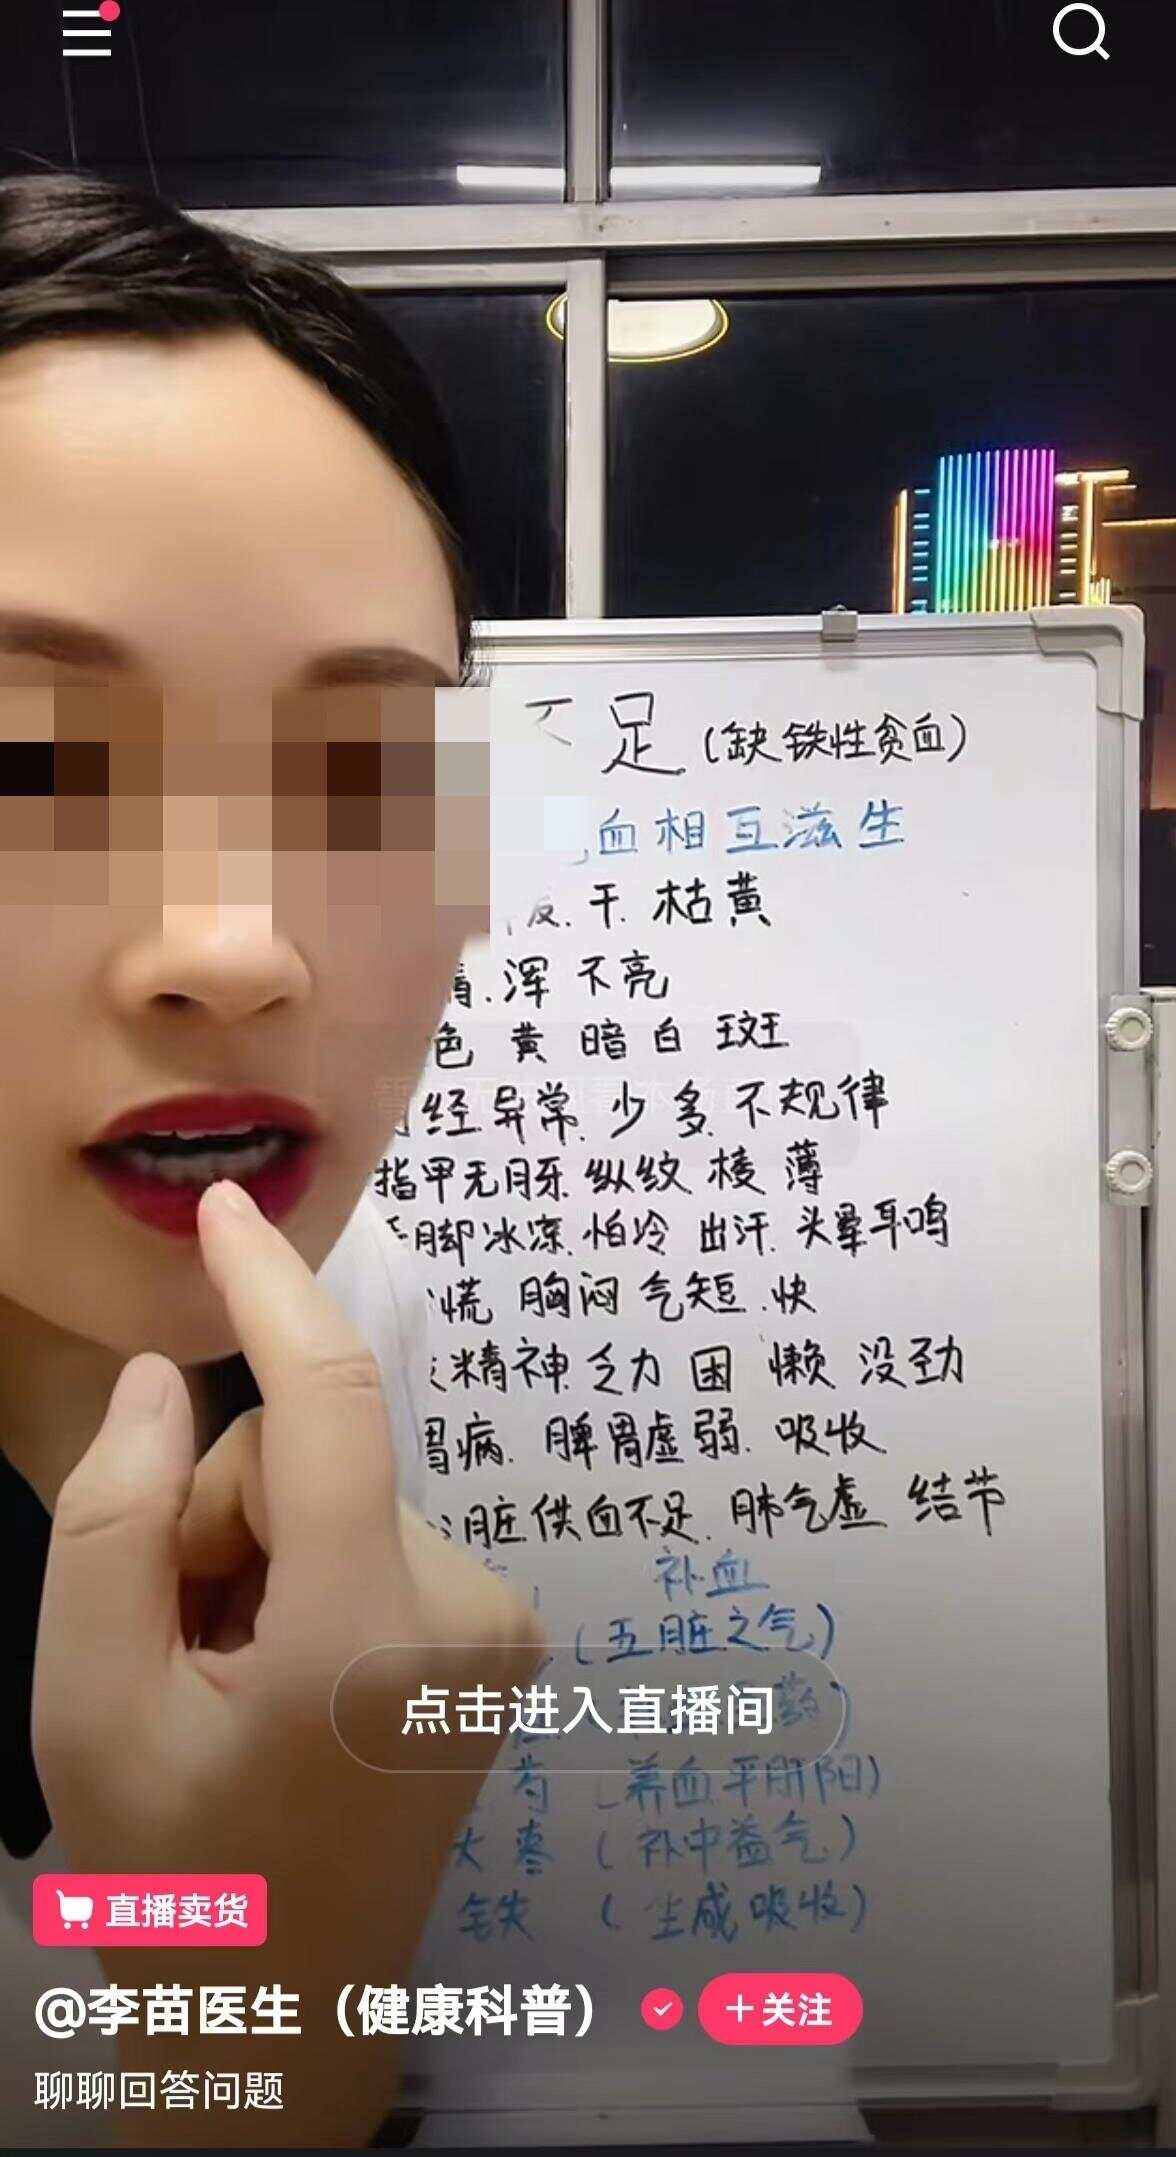 不足(缺铁性贫血)
血相互滋生
发.干.枯黄
睛.浑不亮
色 黄 暗 白 斑
经异常.少.多.不规律
指甲无月牙.纵纹 棱 薄
脚冰凉.怕冷 出汗.头晕耳鸣
慌 胸闷 气短.快
精神.乏力 困 懒 没劲
胃病.脾胃虚弱.吸收
脏供血不足.肺气虚 结节
补血
(五脏之气)
点击进入直播间
药)
芍 (养血平肝阳)
大枣 (补中益气)
铁 (
吸收)
直播卖货
@李苗医生（健康科普）
+关注
聊聊回答问题